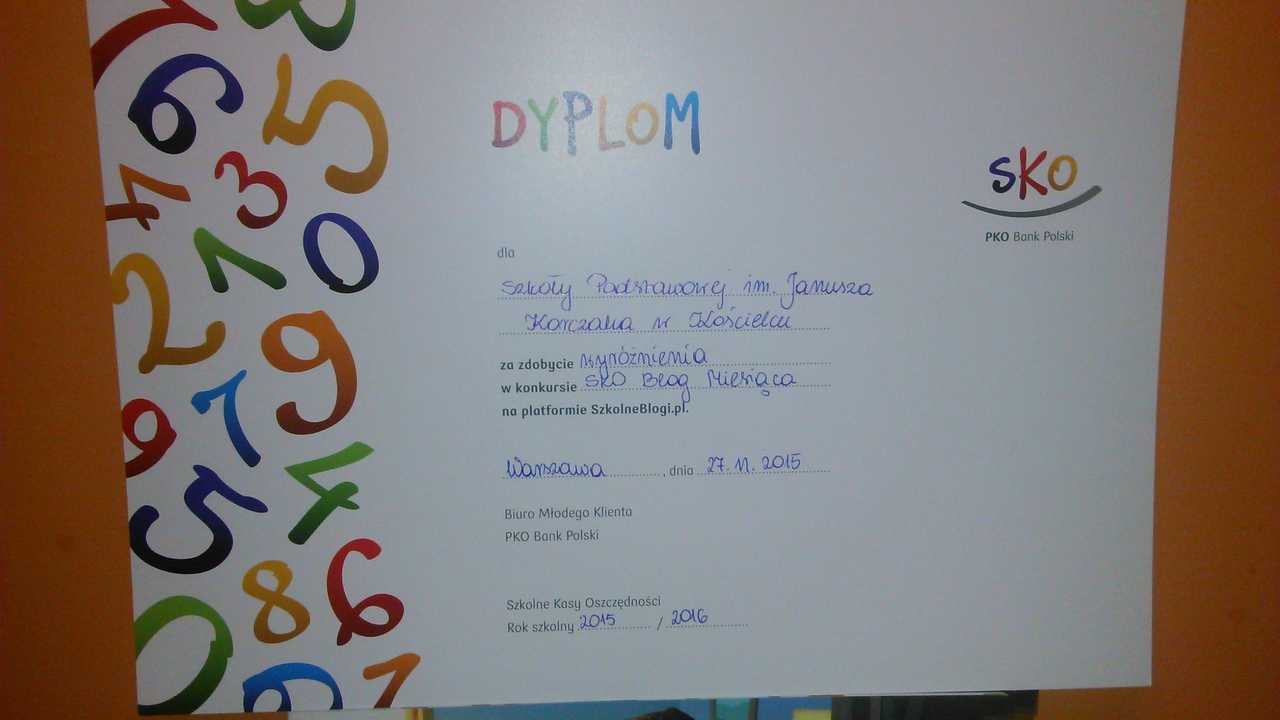 DYPLOM
SKO
PKO Bank Polski
dla
Szkoły Podstawowej im. Janusza
Korczaka w Kościelcu
za zdobycie wyróżnienia
w konkursie SKO Blog Miesiąca
na platformie SzkolneBlogi.pl.
Warszawa, dnia 27.11.2015
Biuro Młodego Klienta
PKO Bank Polski
Szkolne Kasy Oszczędności
Rok szkolny 2015 / 2016